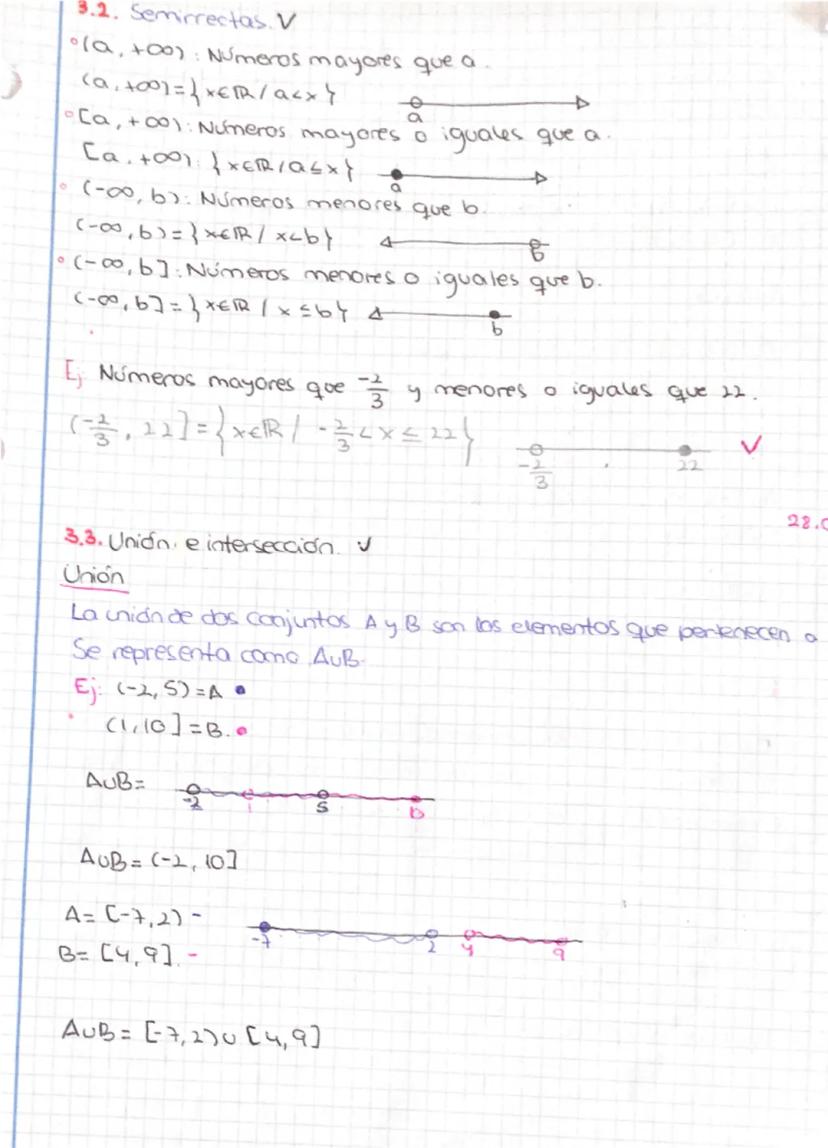 3.2. Semirrectas. V
(a, +∞): Números mayores que a.
(a, +∞) = {x∈ℝ / a<x}
a
[a, +∞): Números mayores o iguales que a.
[a, +∞): {x∈ℝ / a≤x}
a
(-∞, b): Números menores que b.
(-∞, b) = {x∈ℝ / x<b}
b
(-∞, b]: Números menores o iguales que b.
(-∞, b] = {x∈ℝ / x≤b}
b
Ej Números mayores que -2/3 y menores o iguales que 22.
(-2/3, 22] = {x∈ℝ / -2/3 < x ≤ 22}
-2/3 22
28.
3.3. Unión e intersección. √
Unión
La unión de dos conjuntos A y B son los elementos que pertenecen a
Se representa como A∪B.
Ej: (-2, 5) = A
(1, 10] = B.
A∪B =
-2 1 5 10
A∪B = (-2, 10]
A = [-7, 2) -
-7 2 4 9
B = [4, 9]. -
A∪B = [-7, 2) ∪ [4, 9]